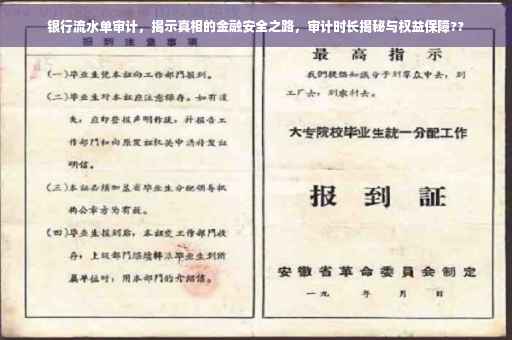 银行流水单审计，揭示真相的金融安全之路，审计时长揭秘与权益保障??
报到注意事项
(一)毕业生凭本证向工作部门报到。
(二)毕业生对本证应注意保存。如有遗
失，应即登报声明作废，并报告工
作部门和向原发证机关申请补发证
明信。
(三)本证必须加盖省毕业生分配领导机
构公章方为有效。
(四)毕业生报到后，本证交工作部门收
存；上级部门继续转派毕业生到所
属单位时，用本部门的介绍信。
最高指示
我们提倡知识分子到群众中去，到
工厂去，到农村去。
大专院校毕业生统一分配工作
报到証
安徽省革命委員会制定
一九 年 月 日